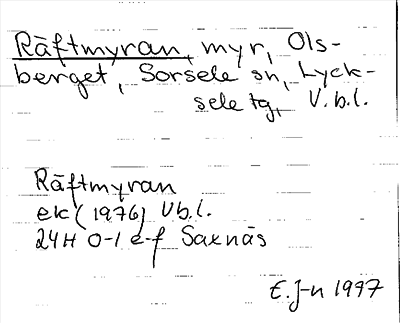 Räftmyran, myr, Ols-
berget, Sorsele sn, Lyck-
sele tg, V.b.l.
Räftmyran
ek (1976) Vb.l.
24H 0-1 e-f Saxnäs
E. J-n 1997